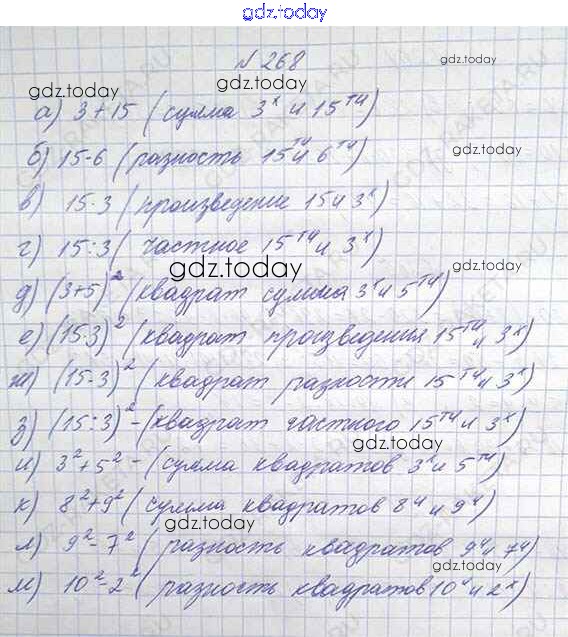 gdz.today
N 268
gdz.today gdz.today
а) 3+15 (сумма 3х и 15ти)
б) 15-6 (разность 15ти 6ти) gdz.today
в) 15·3 (произведение 15 и 3х)
г) 15:3 (частное 15ти и 3х)
gdz.today gdz.today
д) (3+5)² (квадрат сумма 3х и 5ти)
е) (15·3)² (квадрат произведения 15ти и 3х)
ж) (15-3)² (квадрат разности 15ти и 3х)
з) (15:3)² - (квадрат частного 15ти и 3х)
gdz.today
и) 3²+5² - (сумма квадратов 3х и 5ти)
к) 8²+9² (сумма квадратов 8и и 9и)
gdz.today
л) 9²-7² (разность квадратов 9и и 7и)
м) 10²-2² (разность квадратов 10и и 2х)
gdz.today